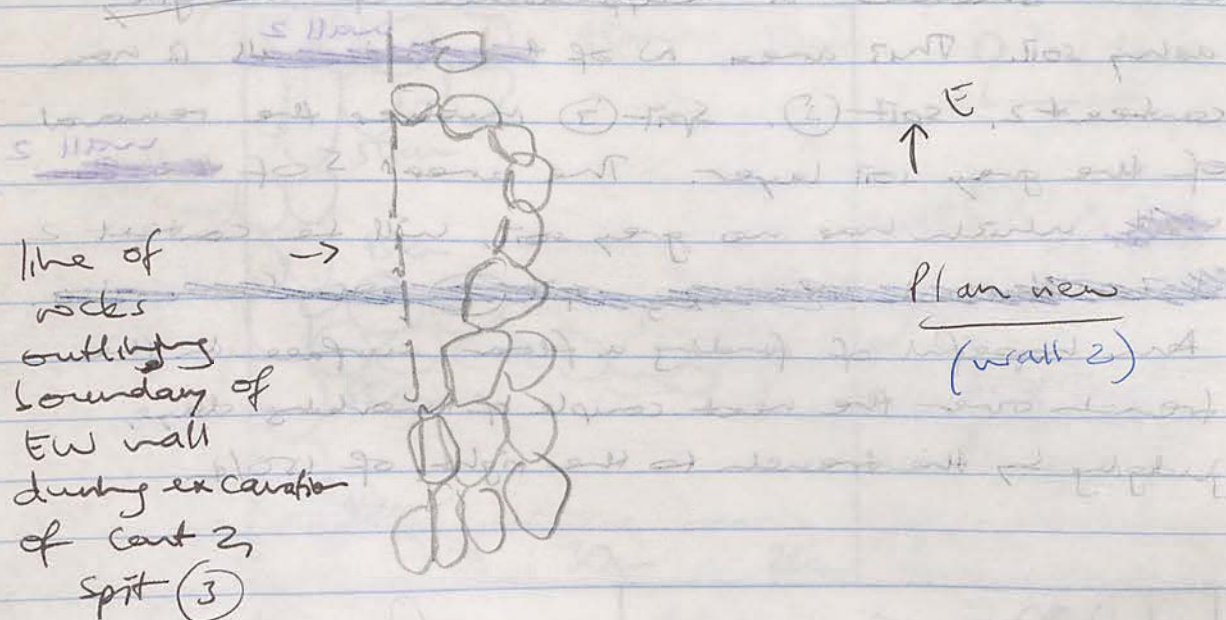 E
line of →
rocks
outlining
boundary of
EW wall
during excavation
of cont 2,
spit ③
Plan view
(wall 2)